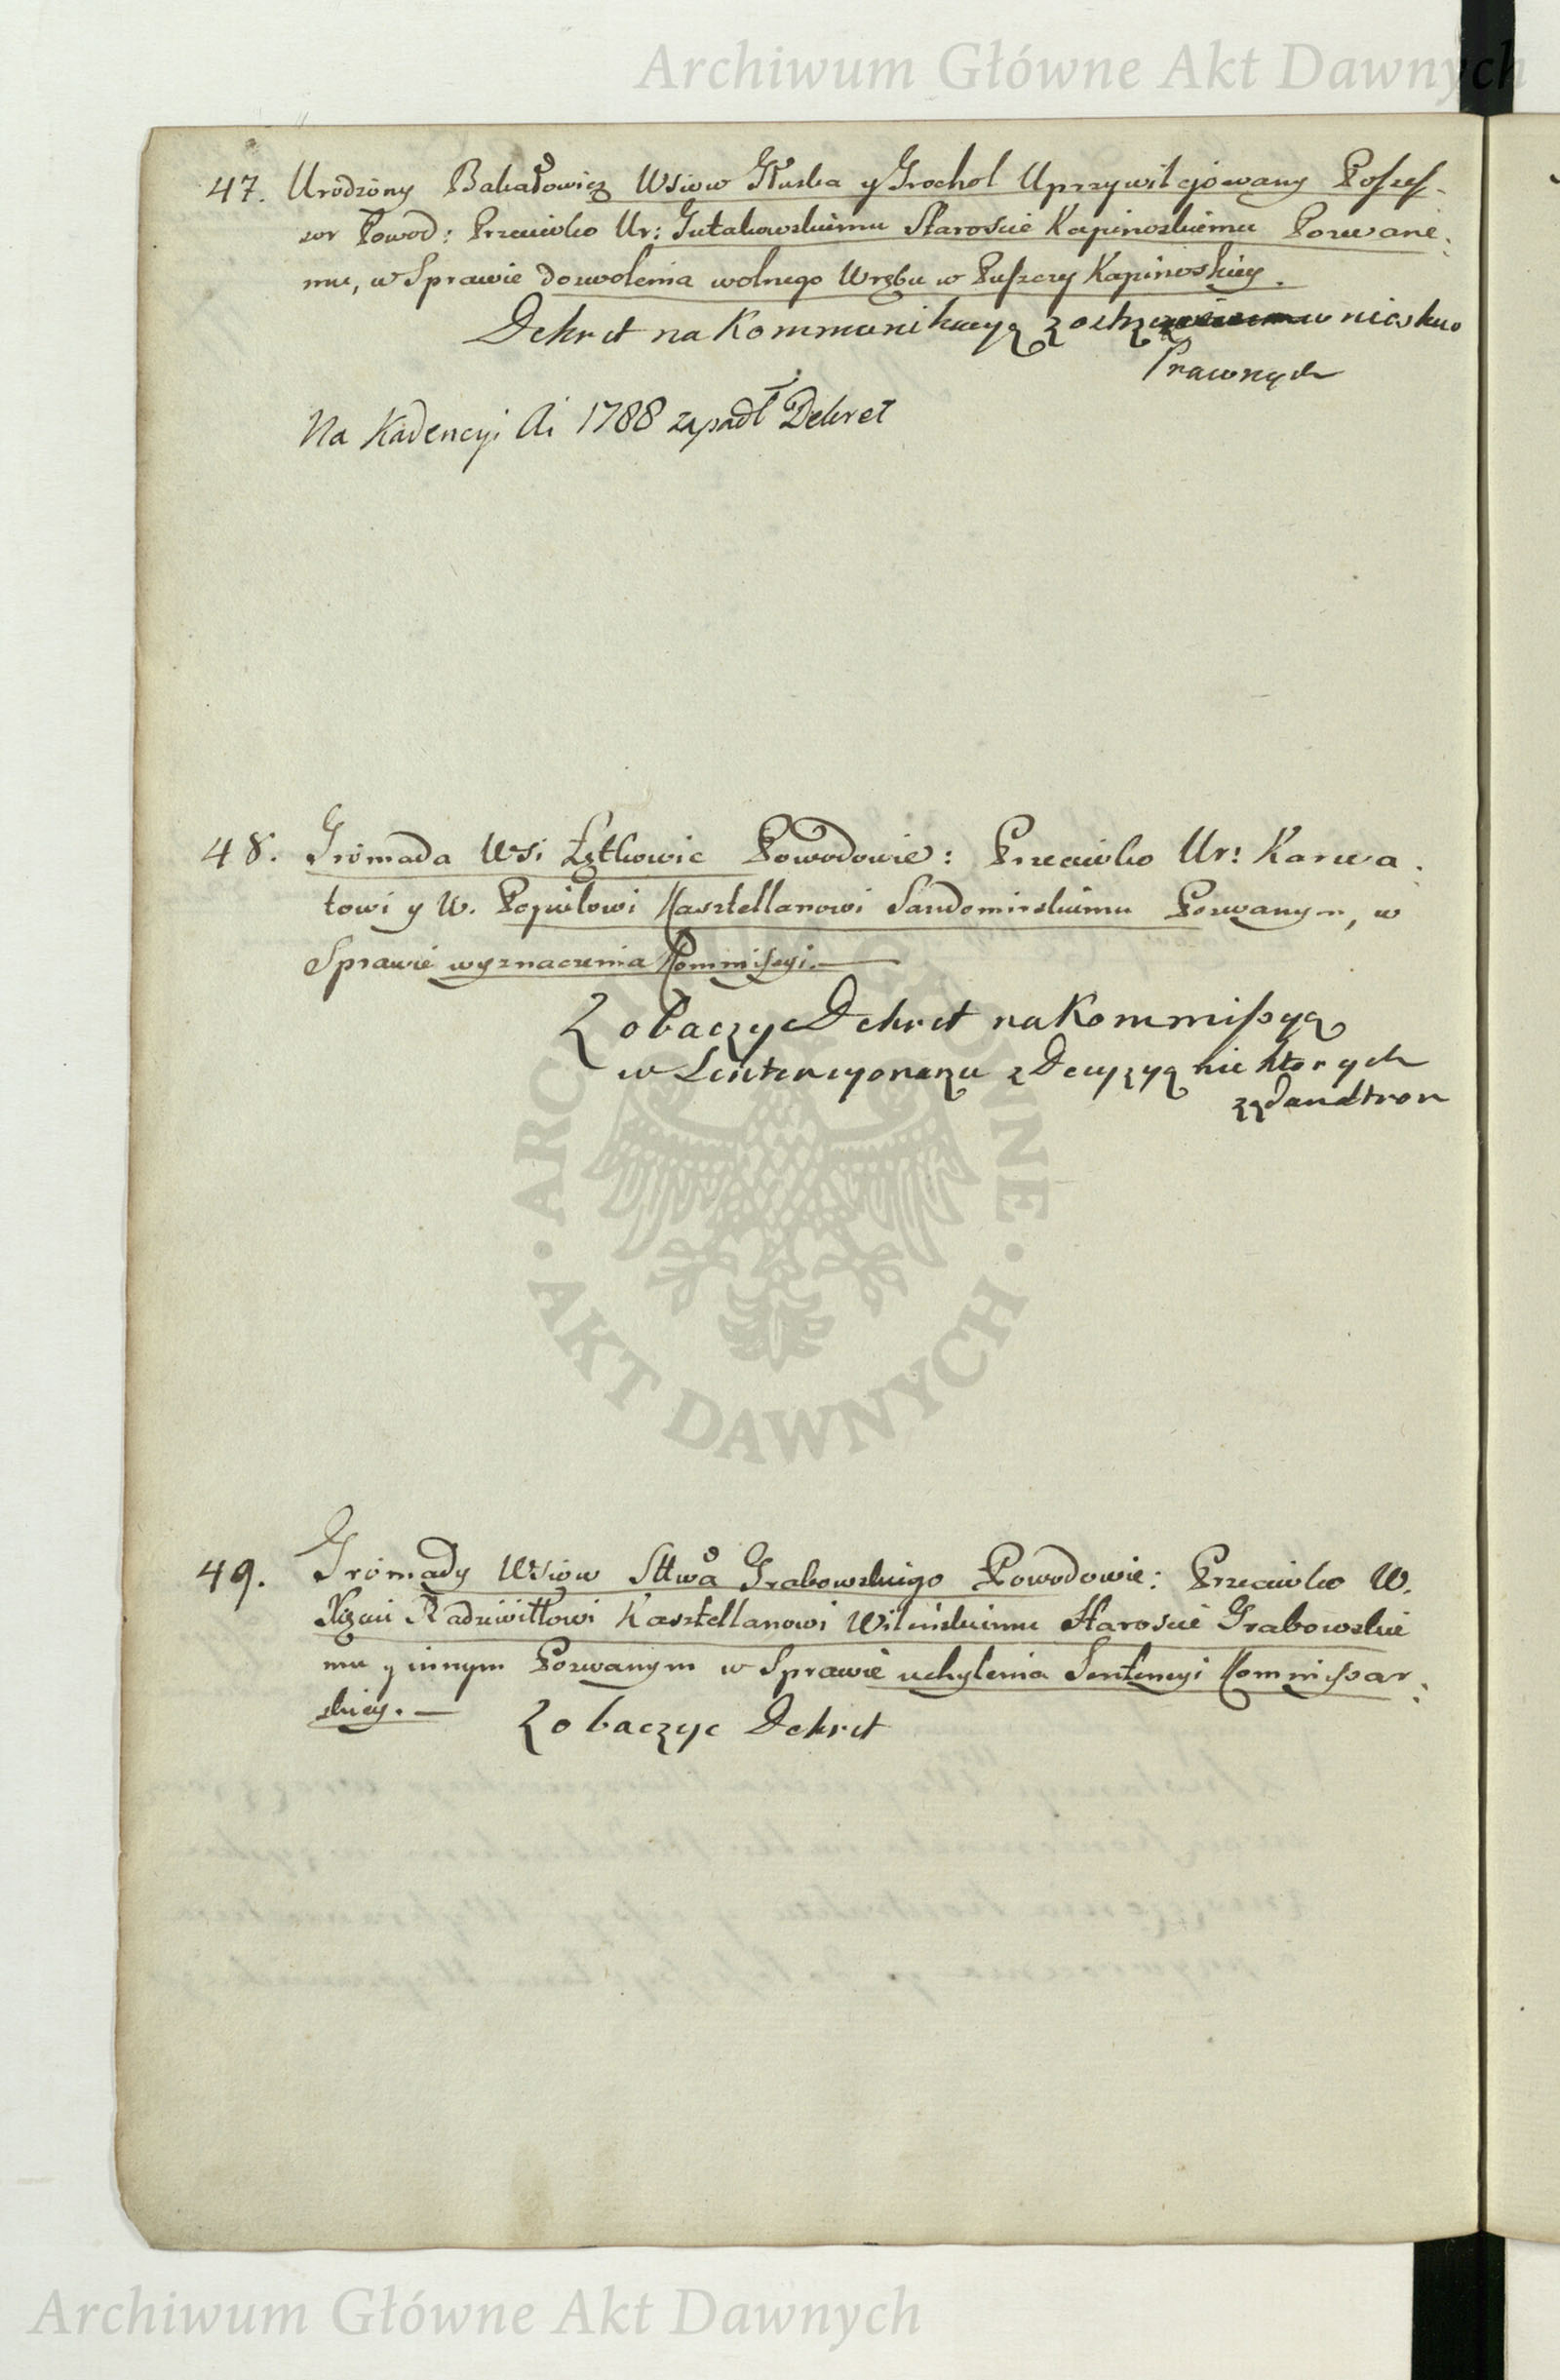 Archiwum Główne Akt Dawnych
47. Urodzony Bakałowicz Wsiow Głuska y Grochol Uprzywilejowany Possess-
sor Powod: Przeciwko Ur: Gutakowskiemu Staroscie Kapinoskiemu Pozwane:
mu, w Sprawie dozwolenia wolnego Wrębu w Puszczy Kapinoskiey.
Dekret na Kommunikacyą z
Prawnych
Na Kadencyi Ai 1788 zapadł Dekret
48. Gromada Wsi Łętkowic Powodowie: Przeciwko Ur: Karwa:
towi y W. Popielowi Kasztellanowi Sandomirskiemu Pozwanym, w
Sprawie wyznaczenia Kommissyi.—
Zobaczyc Dekret na Kommissyą
w Sentencyonarzu z Decyzyą niektorych
żądan stron
49. Gromady Wsiow Sttwa Grabowskiego Powodowie: Przeciwko W.
Xięciu Radziwiłłowi Kasztellanowi Wileńskiemu Staroscie Grabowskie
mu y innym Pozwanym w Sprawie uchylenia Sentencyi Kommissar:
skiey.— Zobaczyc Dekret
ARCHIWUM GŁÓWNE · AKT DAWNYCH ·
Archiwum Główne Akt Dawnych